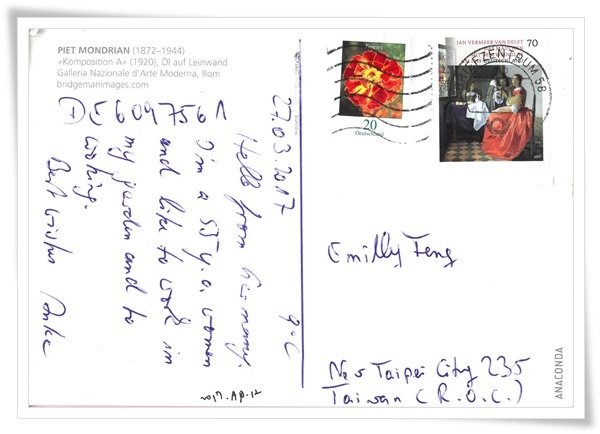 PIET MONDRIAN (1872–1944)
»Komposition A« (1920), Öl auf Leinwand
Galleria Nazionale d'Arte Moderna, Rom
bridgemanimages.com
DE6097561
27.03.2017 9°C
Hello from Germany.
I'm a 55 y.o. women
and like to work in
my garden and to
Best wishes Anke
2017.AP.12
20
Deutschland
JAN VERMEER VAN DELFT 70
BRIEFZENTRUM 58
Emilly Feng
New Taipei City 235
Taiwan (R.O.C.)
ANACONDA